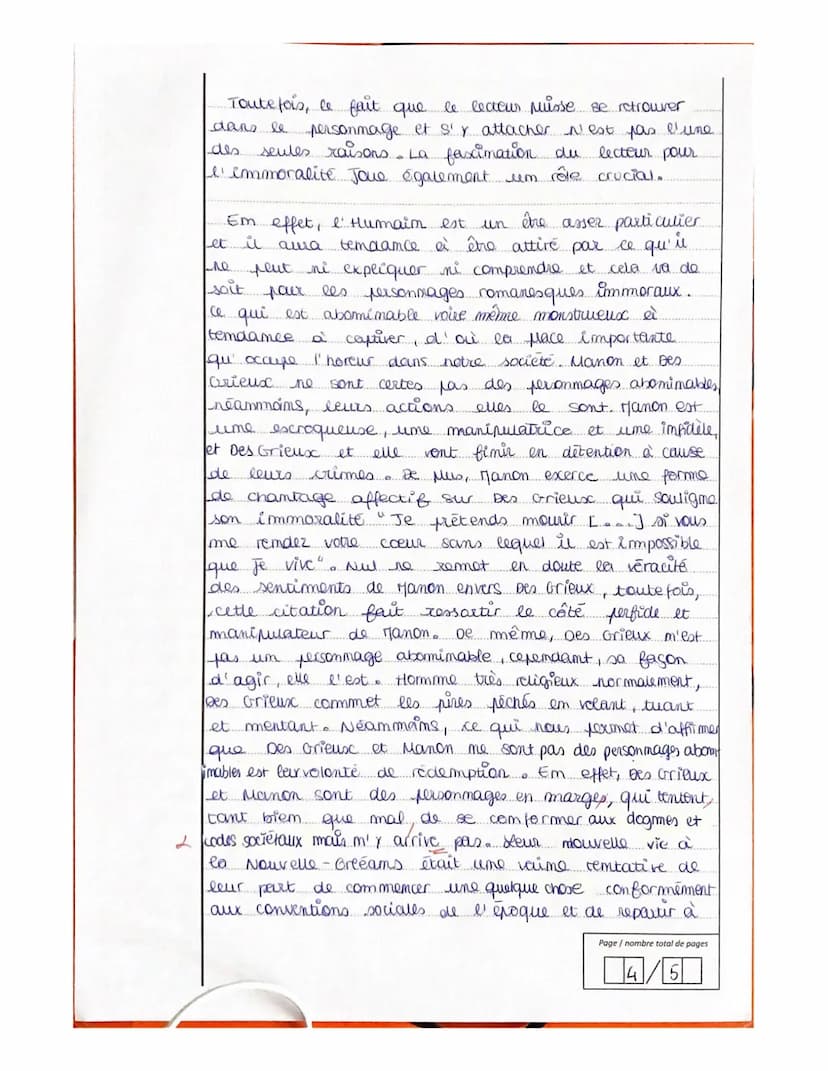 Toutefois, le fait que le lecteur puisse se retrouver
dans le personnage et s'y attacher n'est pas l'une
des seules raisons. La fascination du lecteur pour
l'immoralité joue également un rôle crucial.
En effet, l'Humain est un être assez particulier
et il aura tendance à être attiré par ce qu'il
ne peut ni expliquer ni comprendre et cela va de
soit pour les personnages romanesques immoraux.
Ce qui est abominable voire même monstrueux à
tendance à captiver, d'où la place importante
qu'occupe l'horeur dans notre société. Manon et Des
Grieux ne sont certes pas des personnages abominables,
néammoins, leurs actions elles le sont. Manon est
une escroqueuse, une manipulatrice et une infidèle,
et Des Grieux et elle vont finir en détention à cause
de leurs crimes. De plus, Manon exerce une forme
de chantage affectif sur Des Grieux qui souligne
son immoralité "Je prétends mourir [...] si vous
me rendez votre cœur sans lequel il est impossible
que je vive". Nul ne remet en doute la véracité
des sentiments de Manon envers Des Grieux, toutefois,
cette citation fait ressortir le côté perfide et
manipulateur de Manon. De même, Des Grieux n'est
pas un personnage abominable, cependant, sa façon
d'agir, elle l'est. Homme très religieux normalement,
Des Grieux commet les pires péchés en volant, tuant
et mentant. Néammoins, ce qui nous permet d'affirmer
que Des Grieux et Manon ne sont pas des personnages abom
inables est leur volonté de rédemption. En effet, Des Grieux
et Manon sont des personnages en marges, qui tentent,
tant bien que mal, de se comformer aux dogmes et
codes sociétaux mais n'y arrive pas. Leur nouvelle vie à
la Nouvelle-Orléans était une vaine tentative de
leur part de commencer une quelque chose conformément
aux conventions sociales de l'époque et de repartir à
Page / nombre total de pages
4/5